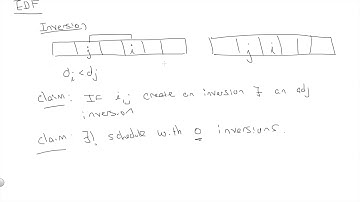 EDF
Inversion
j i j i
di < dj
claim: IF i,j create an inversion ∃ an adj
inversion
claim: ∃! schedule with 0 inversions.